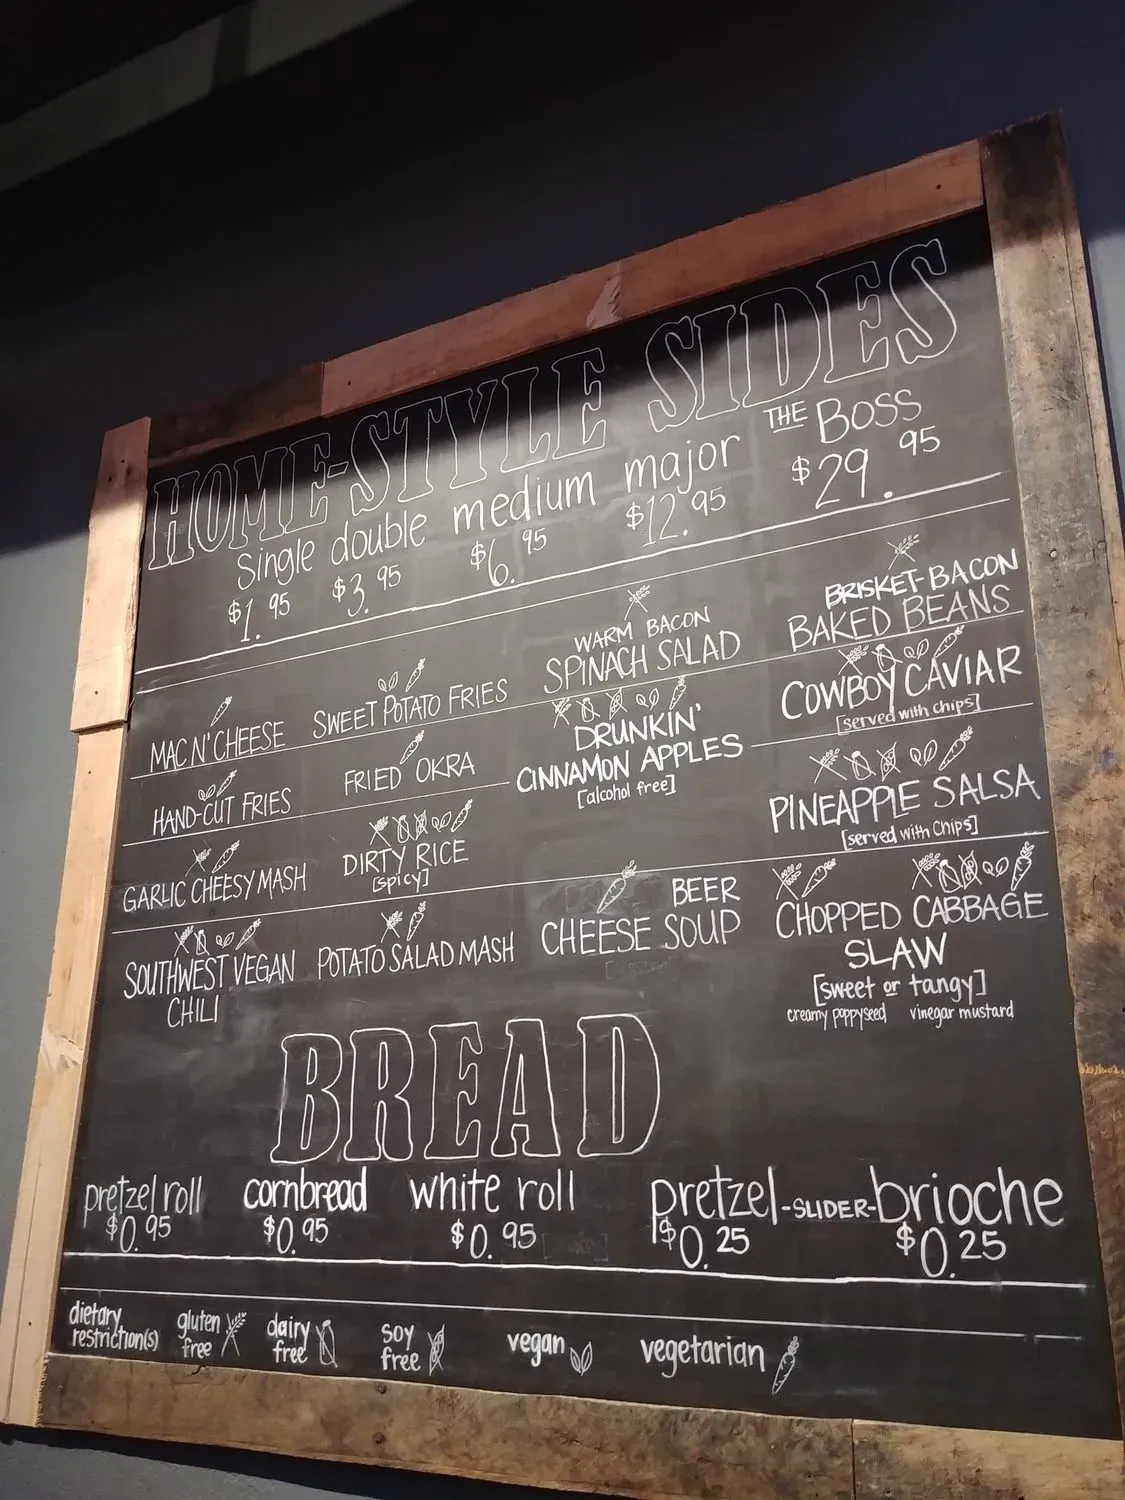 HOME-STYLE SIDES
Single double medium major THE BOSS
$1.95 $3.95 $6.95 $12.95 $29.95
MAC N' CHEESE
HAND-CUT FRIES
GARLIC CHEESY MASH
SOUTHWEST VEGAN
CHILI
SWEET POTATO FRIES
FRIED OKRA
DIRTY RICE
[spicy]
POTATO SALAD MASH
WARM BACON
SPINACH SALAD
DRUNKIN'
CINNAMON APPLES
[alcohol free]
BEER
CHEESE SOUP
BRISKET-BACON
BAKED BEANS
COWBOY CAVIAR
[served with chips]
PINEAPPLE SALSA
[served with chips]
CHOPPED CABBAGE
SLAW
[sweet or tangy]
creamy poppyseed vinegar mustard
BREAD
pretzel roll cornbread white roll pretzel-SLIDER-brioche
$0.95 $0.95 $0.95 $0.25 $0.25
dietary
restriction(s)
gluten
free
dairy
free
soy
free
vegan
vegetarian